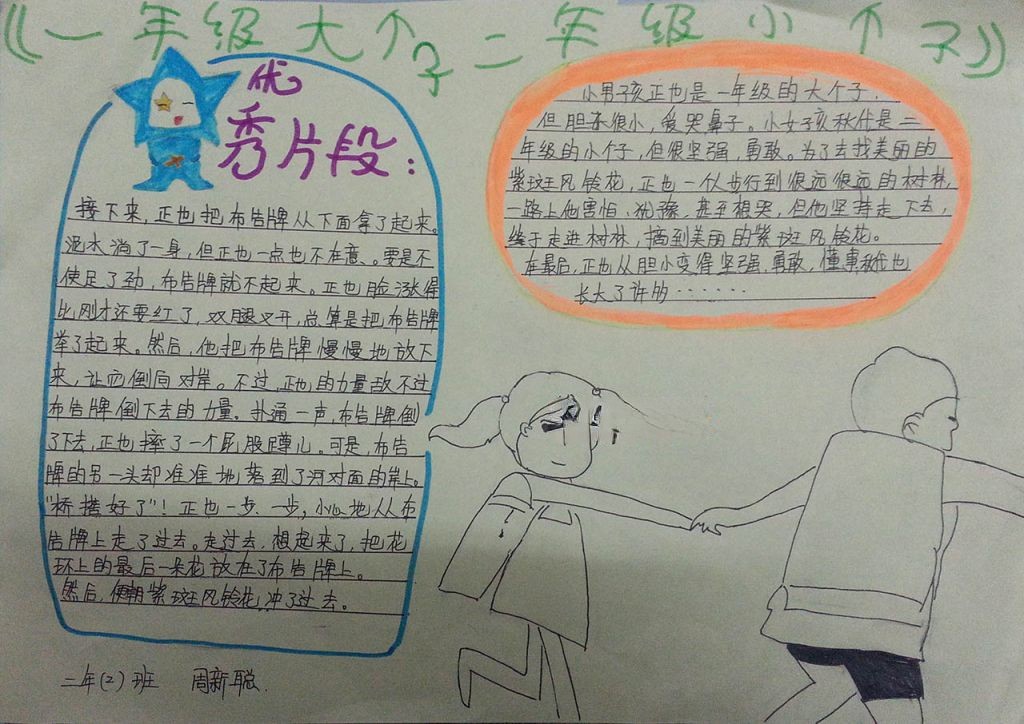 《一年级大个子二年级小个子》
优
秀片段:
接下来,正也把布告牌从下面拿了起来。
泥水淌了一身,但正也一点也不在意。要是不
使足了劲,布告牌就不起来。正也脸涨得
比刚才还要红了,双腿叉开,总算是把布告牌
举了起来。然后,他把布告牌慢慢地放下
来,让它倒向对岸。不过,正也的力量敌不过
布告牌倒下去的力量。扑通一声,布告牌倒
了下去,正也摔了一个屁股蹲儿。可是,布告
牌的另一头却准准地落到了河对面的岸上。
"桥搭好了"!正也一步、一步,小心地从布
告牌上走了过去。走过去,想起来了,把花
环上的最后一朵花放在了布告牌上。
然后,便朝紫斑风铃花,冲了过去。
小男孩正也是一年级的大个子,
但胆 很小,爱哭鼻子。小女孩秋代是二
年级的小个子,但很坚强,勇敢。为了去找美丽的
紫斑风铃花,正也一个人步行到很远很远的树林,
一路上他害怕、犹豫,甚至想哭,但他坚持走下去,
终于走进树林,摘到美丽的紫斑风铃花。
在最后,正也从胆小变得坚强,勇敢,懂事 也
长大了许的……
二年(2)班 周新聪.